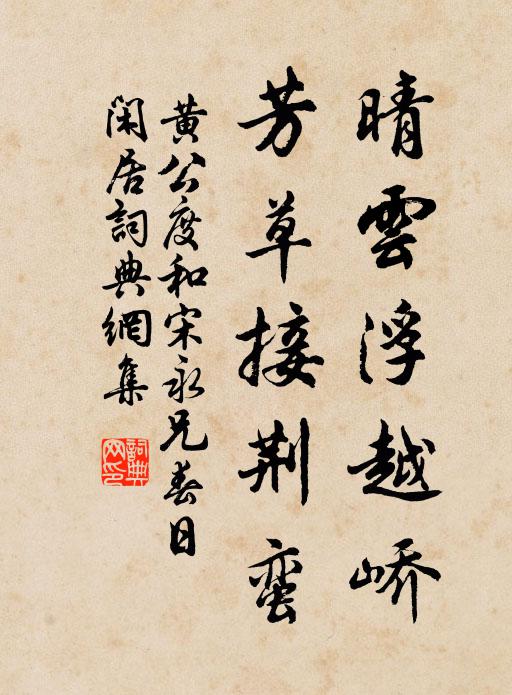 晴雲浮越峤
芳草接荆蛮
黄公度和宋永兄春日
闲居詞典網集
詞典
网印